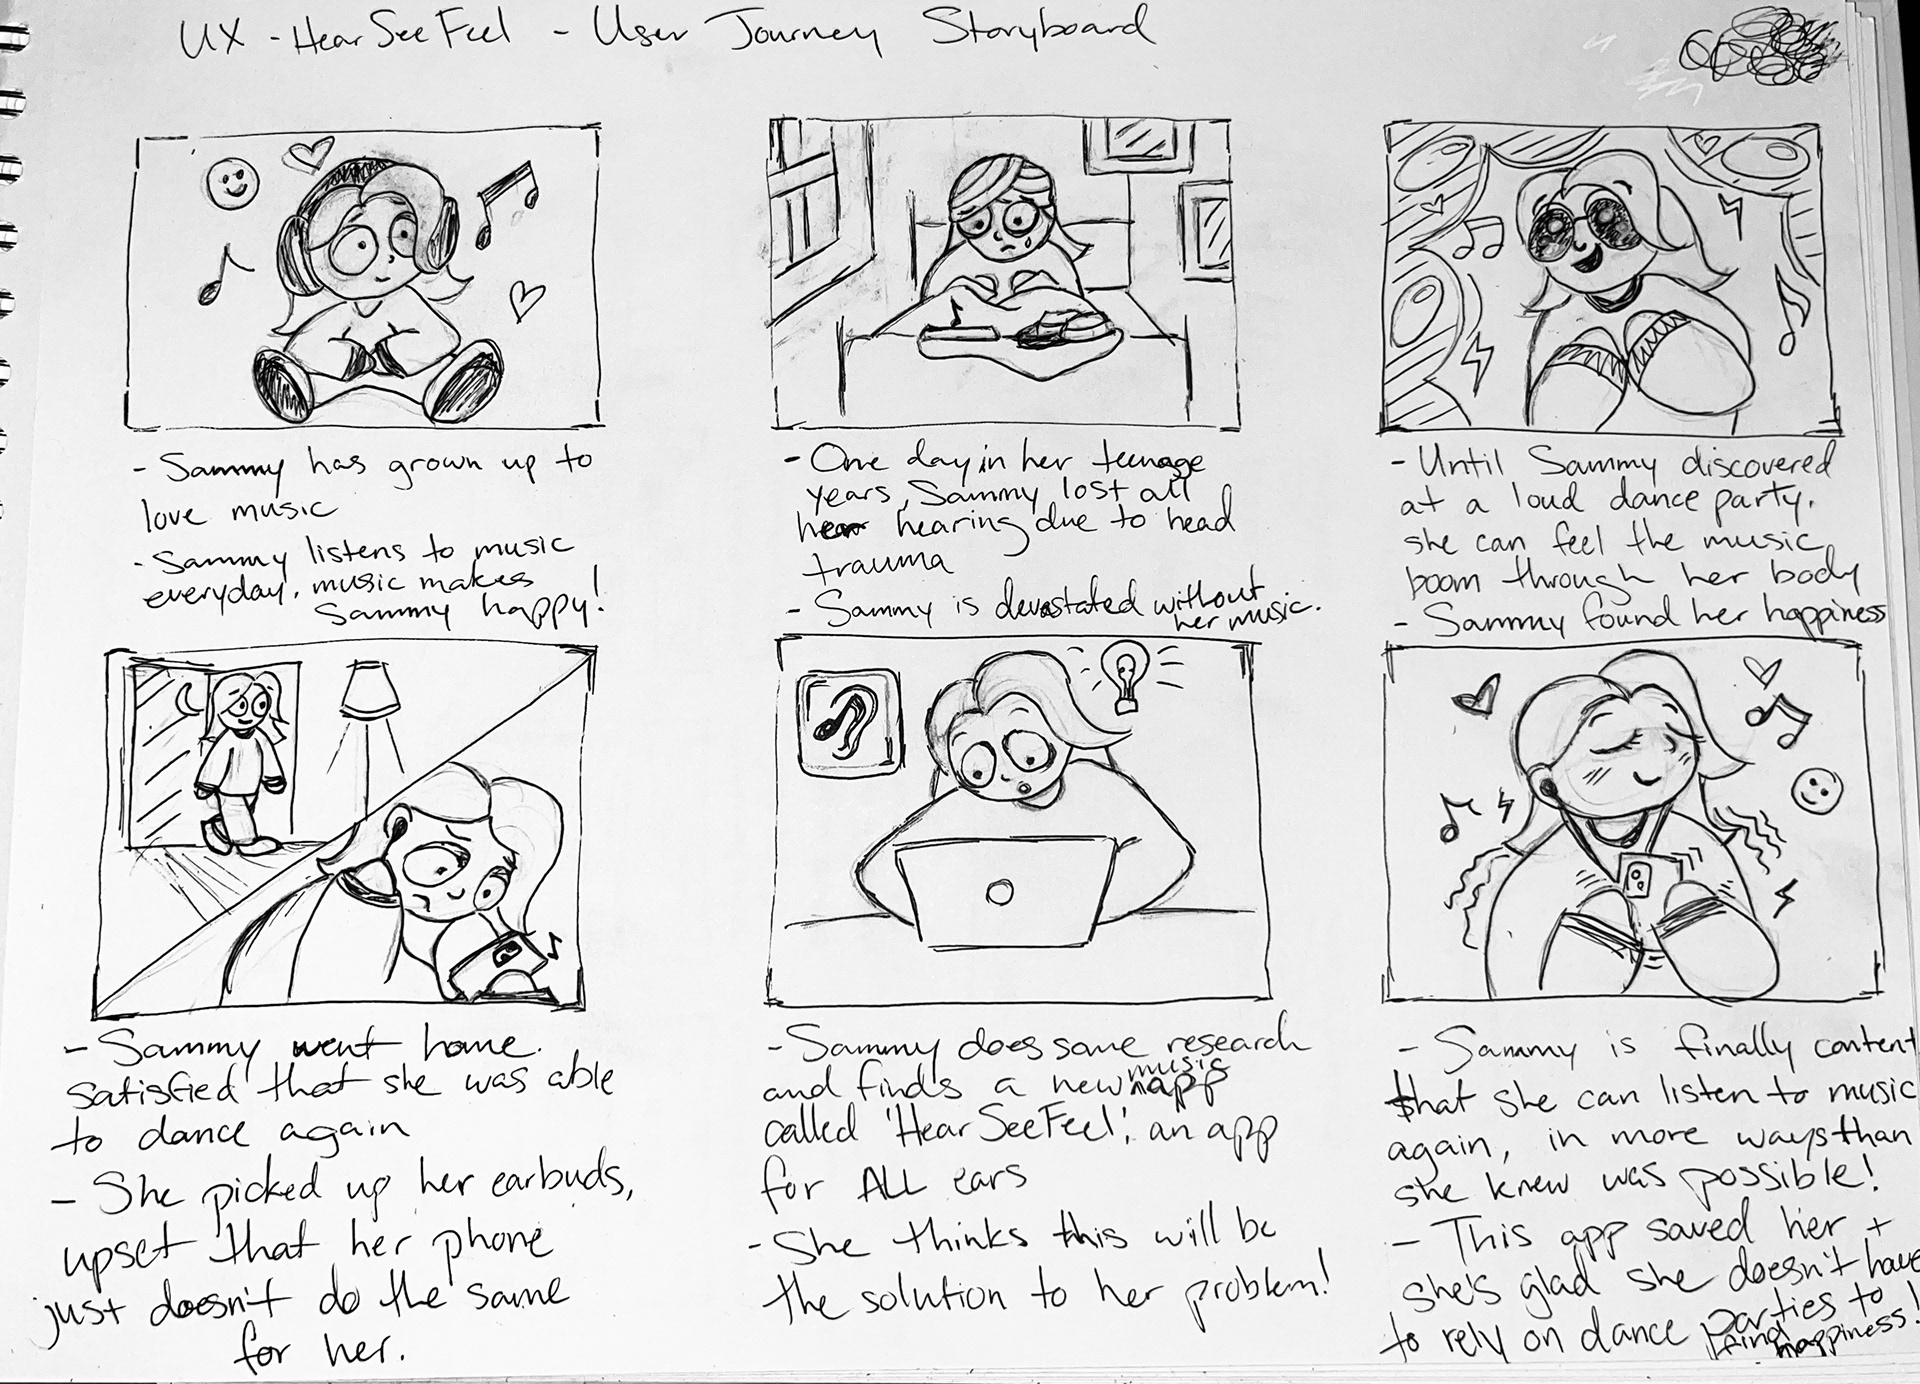 UX - HearSeeFeel - User Journey Storyboard
- Sammy has grown up to
love music
- Sammy listens to music
everyday. music makes
Sammy happy!
- One day in her teenage
years, Sammy lost all
hear hearing due to head
trauma
- Sammy is devastated without
her music.
- Until Sammy discovered
at a loud dance party.
she can feel the music
boom through her body
- Sammy found her happiness
- Sammy went home.
satisfied that she was able
to dance again
- She picked up her earbuds,
upset that her phone
just doesn't do the same
for her.
- Sammy does some research
and finds a new music app
called 'HearSeeFeel', an app
for ALL ears
- She thinks this will be
the solution to her problem!
- Sammy is finally content
that she can listen to music
again, in more ways than
she knew was possible!
- This app saved her +
she's glad she doesn't have
to rely on dance parties to
find happiness!